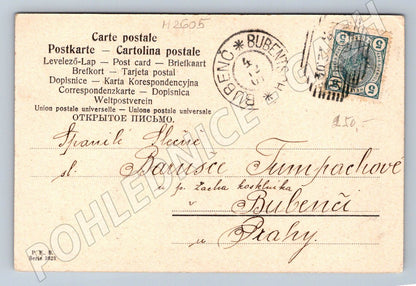 M2605
Carte postale
Postkarte – Cartolina postale
Levelező-Lap — Post card — Briefkaart
Brefkort — Tarjeta postal
Dopisnice — Karta Korespondencyjna
Correspondenzkarte — Dopisnica
Weltpostverein
Union postale universelle — Unione postale universale
ОТКРЫТОЕ ПИСЬМО.
BUBENEČ * BUBENTSCH *
5 5
5
150,-
Spanilé Slečně
sl. Barušce Tumpachové
u p.
v Bubenči
u Prahy.
P. K. K.
Serie 2021
POHLEDNICE